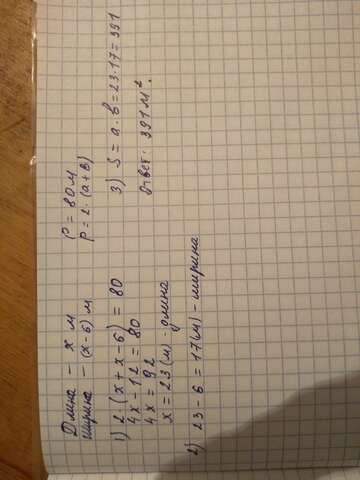 Длина – x м
ширина – (x-6) м
1) 2(x+x-6) = 80
4x-12 = 80
4x = 92
x = 23(м) - длина
2) 23-6 = 17(м) - ширина
P = 80м
P = 2·(a+в)
3) S = a·в = 23·17 = 391
Ответ: 391 м².